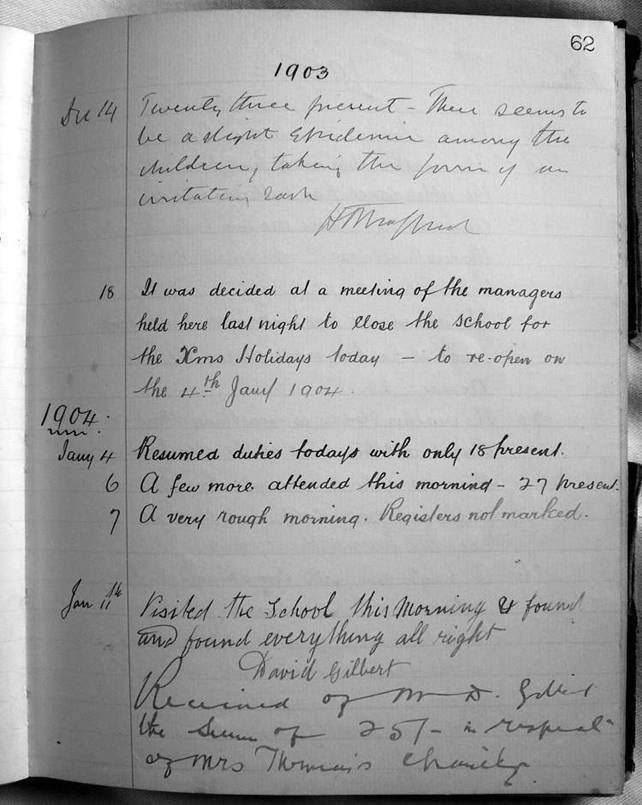 62
1903
Dec 14 Twenty three present - There seems to
be a slight Epidemic among the
children, taking the form of an
irritating rash
18 It was decided at a meeting of the managers
held here last night to close the school for
the Xms Holidays today — to re-open on
the 4th Jany 1904.
1904.
Jany 4 Resumed duties todays with only 18 present.
6 A few more attended this morning - 27 present.
7 A very rough morning. Registers not marked.
Jan 11th Visited the School this Morning & found
and found everything all right
David Gilbert
Received of Mr D. Gilbert
the Sum of 25/- in respect
of Mrs Thomas's Charity.